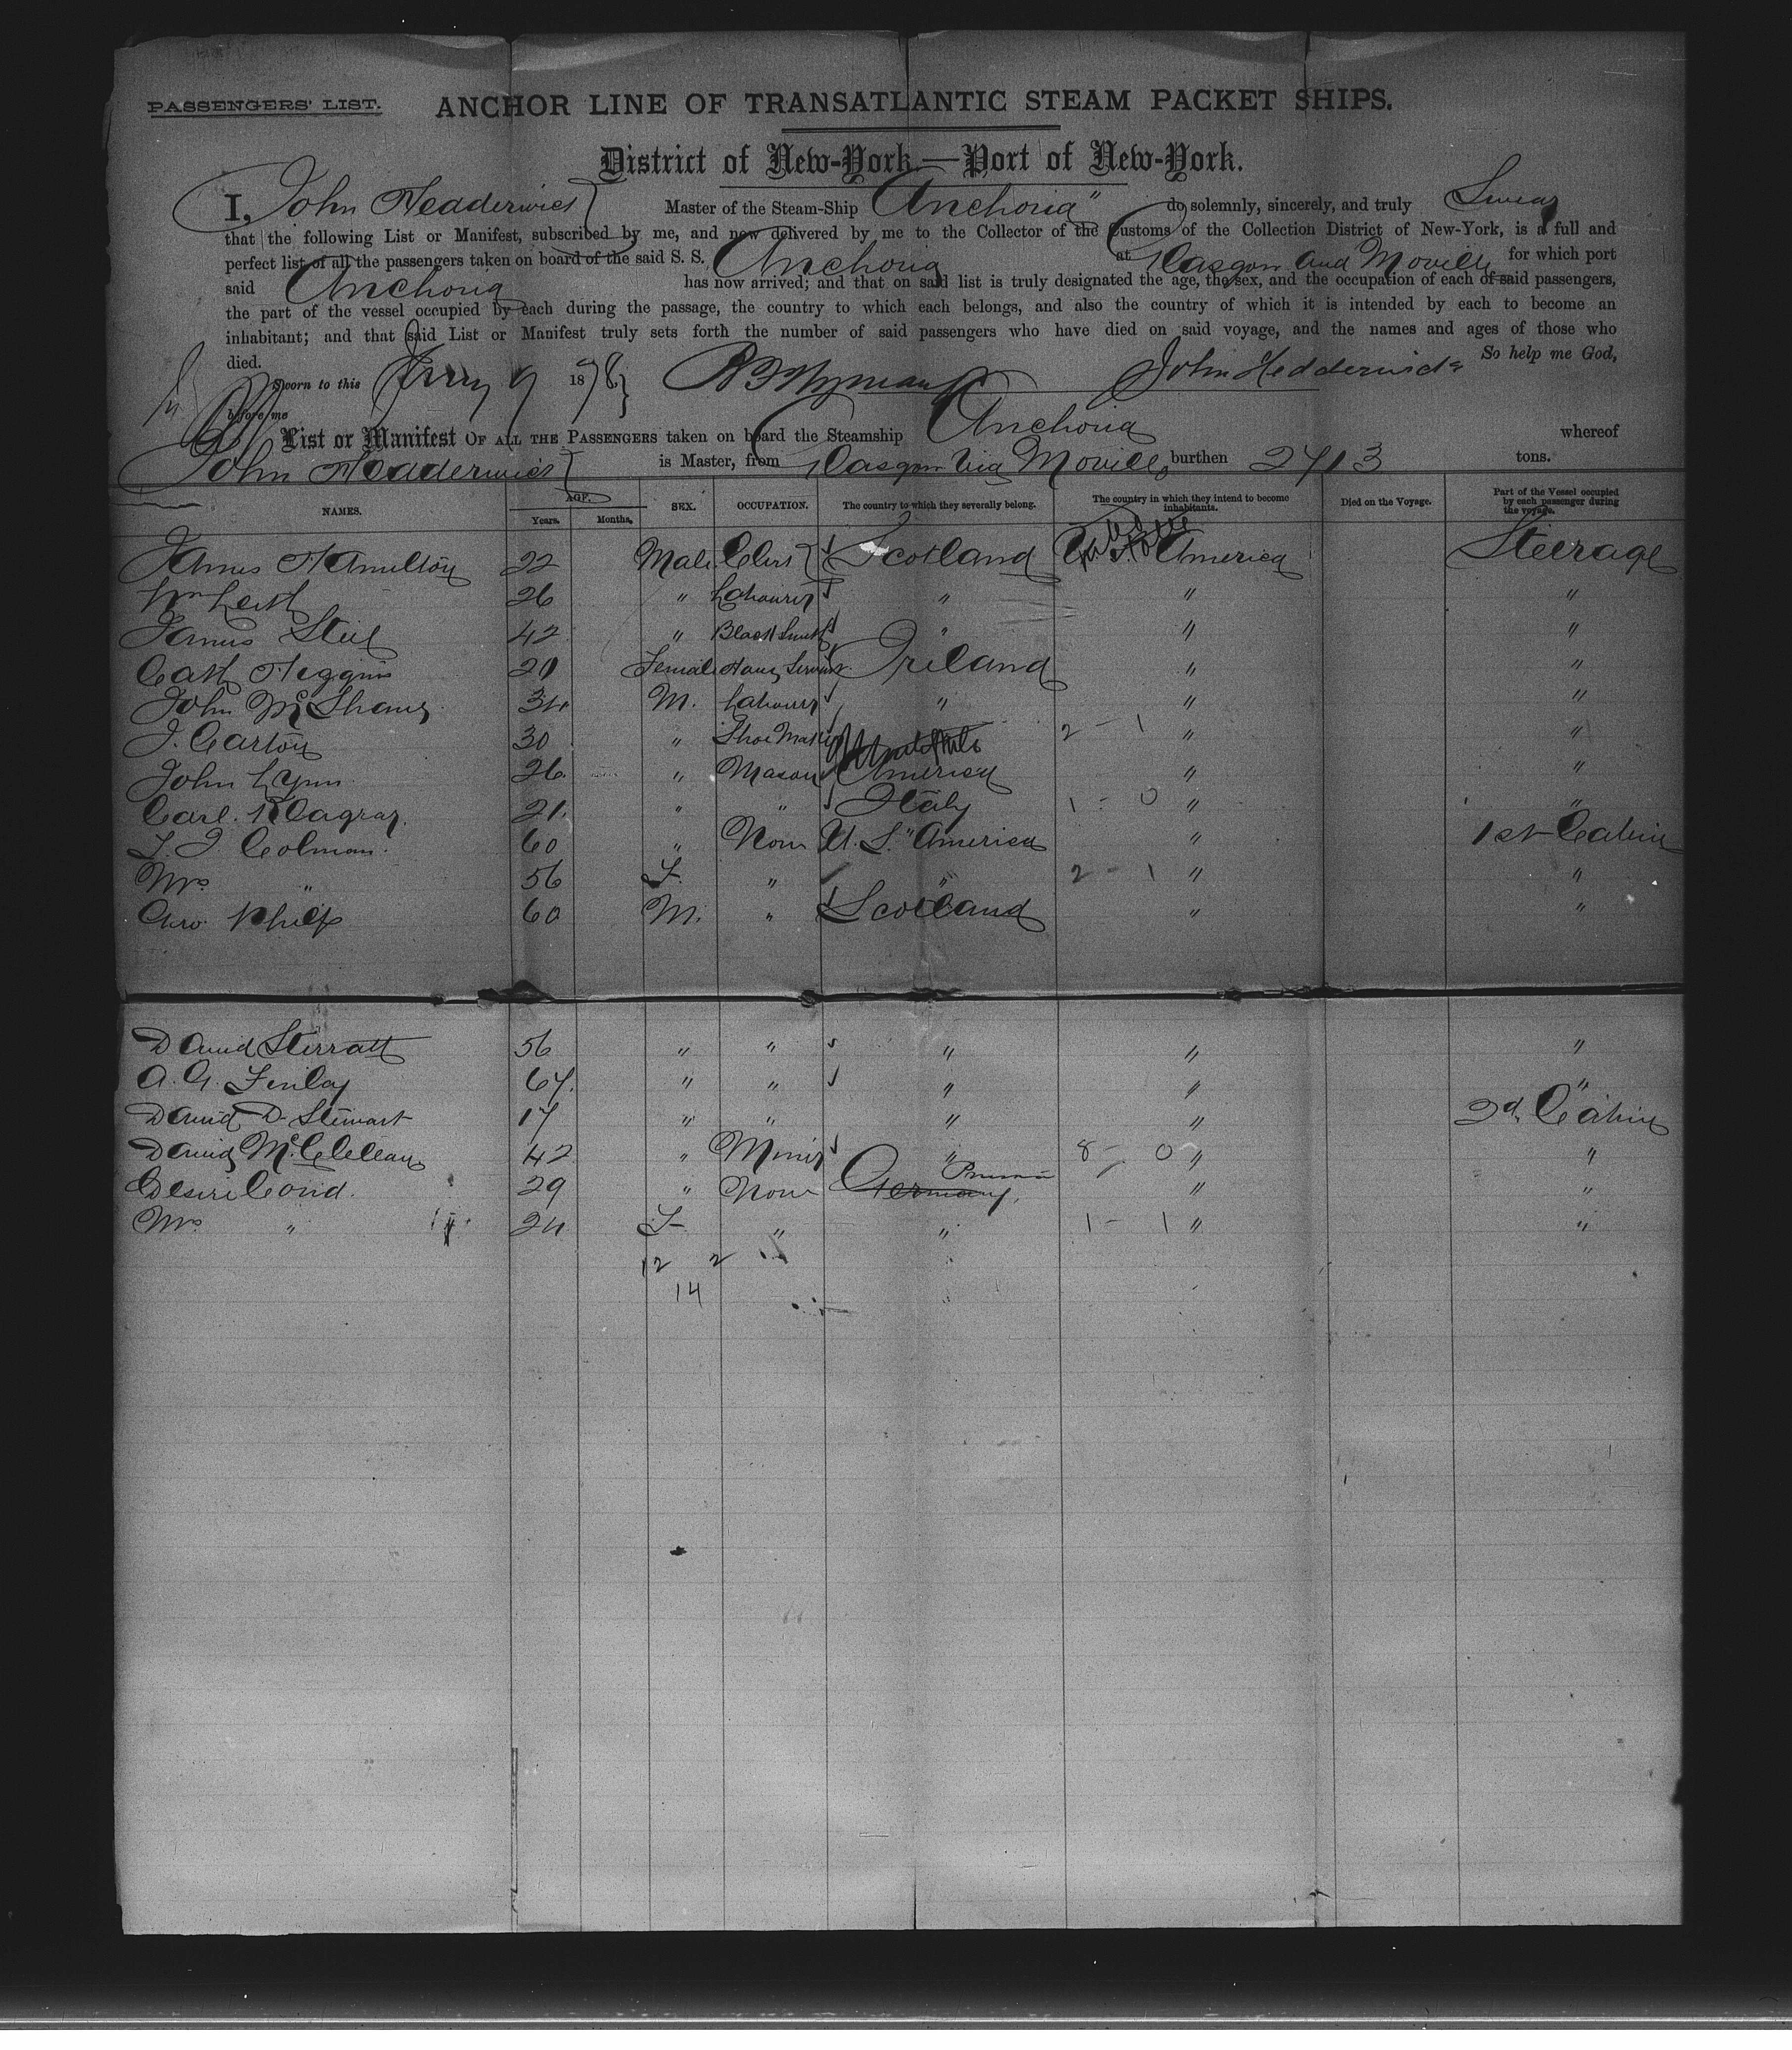 PASSENGERS' LIST. ANCHOR LINE OF TRANSATLANTIC STEAM PACKET SHIPS.
District of New-York—Port of New-York.
I, John Headerwick Master of the Steam-Ship "Anchoria" do solemnly, sincerely, and truly Swear
that the following List or Manifest, subscribed by me, and now delivered by me to the Collector of the Customs of the Collection District of New-York, is a full and
perfect list of all the passengers taken on board of the said S. S. Anchoria at Glasgow and Moville for which port
said Anchoria has now arrived; and that on said list is truly designated the age, the sex, and the occupation of each of said passengers,
the part of the vessel occupied by each during the passage, the country to which each belongs, and also the country of which it is intended by each to become an
inhabitant; and that said List or Manifest truly sets forth the number of said passengers who have died on said voyage, and the names and ages of those who
died. So help me God,
Sworn to this 9 1878 John Hedderwick
before me
List or Manifest OF ALL THE PASSENGERS taken on board the Steamship Anchoria whereof
John Headerwick is Master, from Glasgow via Moville burthen 2713 tons.
NAMES. AGE. Years. Months. SEX. OCCUPATION. The country to which they severally belong. The country in which they intend to become inhabitants. Died on the Voyage. Part of the Vessel occupied by each passenger during the voyage.
James Hamilton 22 Male Clerk Scotland U.S. America Steerage
Wm Leith 26 " Labourer " " "
James Steel 42 " Black Smith " " "
Cath Higgins 20 Female House Servant Ireland " "
John McShane 34 M. Labourer " " "
J. Carton 30 " Shoe Maker 2 - 1 " "
John Lynn 26 " Mason America " "
Carl 21 " " Italy 1 - 0 " "
60 " None U.S. America " 1st Cabin
Mrs " 56 F. " " 2 - 1 " "
Geo. Philp 60 M. " Scotland " "
David Sterratt 56 " " " " "
A. G. Finlay 67 " " " " "
David D. Stewart 17 " " " " 2d Cabin
David McClelland 42 " Miner " 8 - 0 " "
Desire 29 " None Germany " "
Mrs " 24 F " " 1 - 1 " "
12 2
14